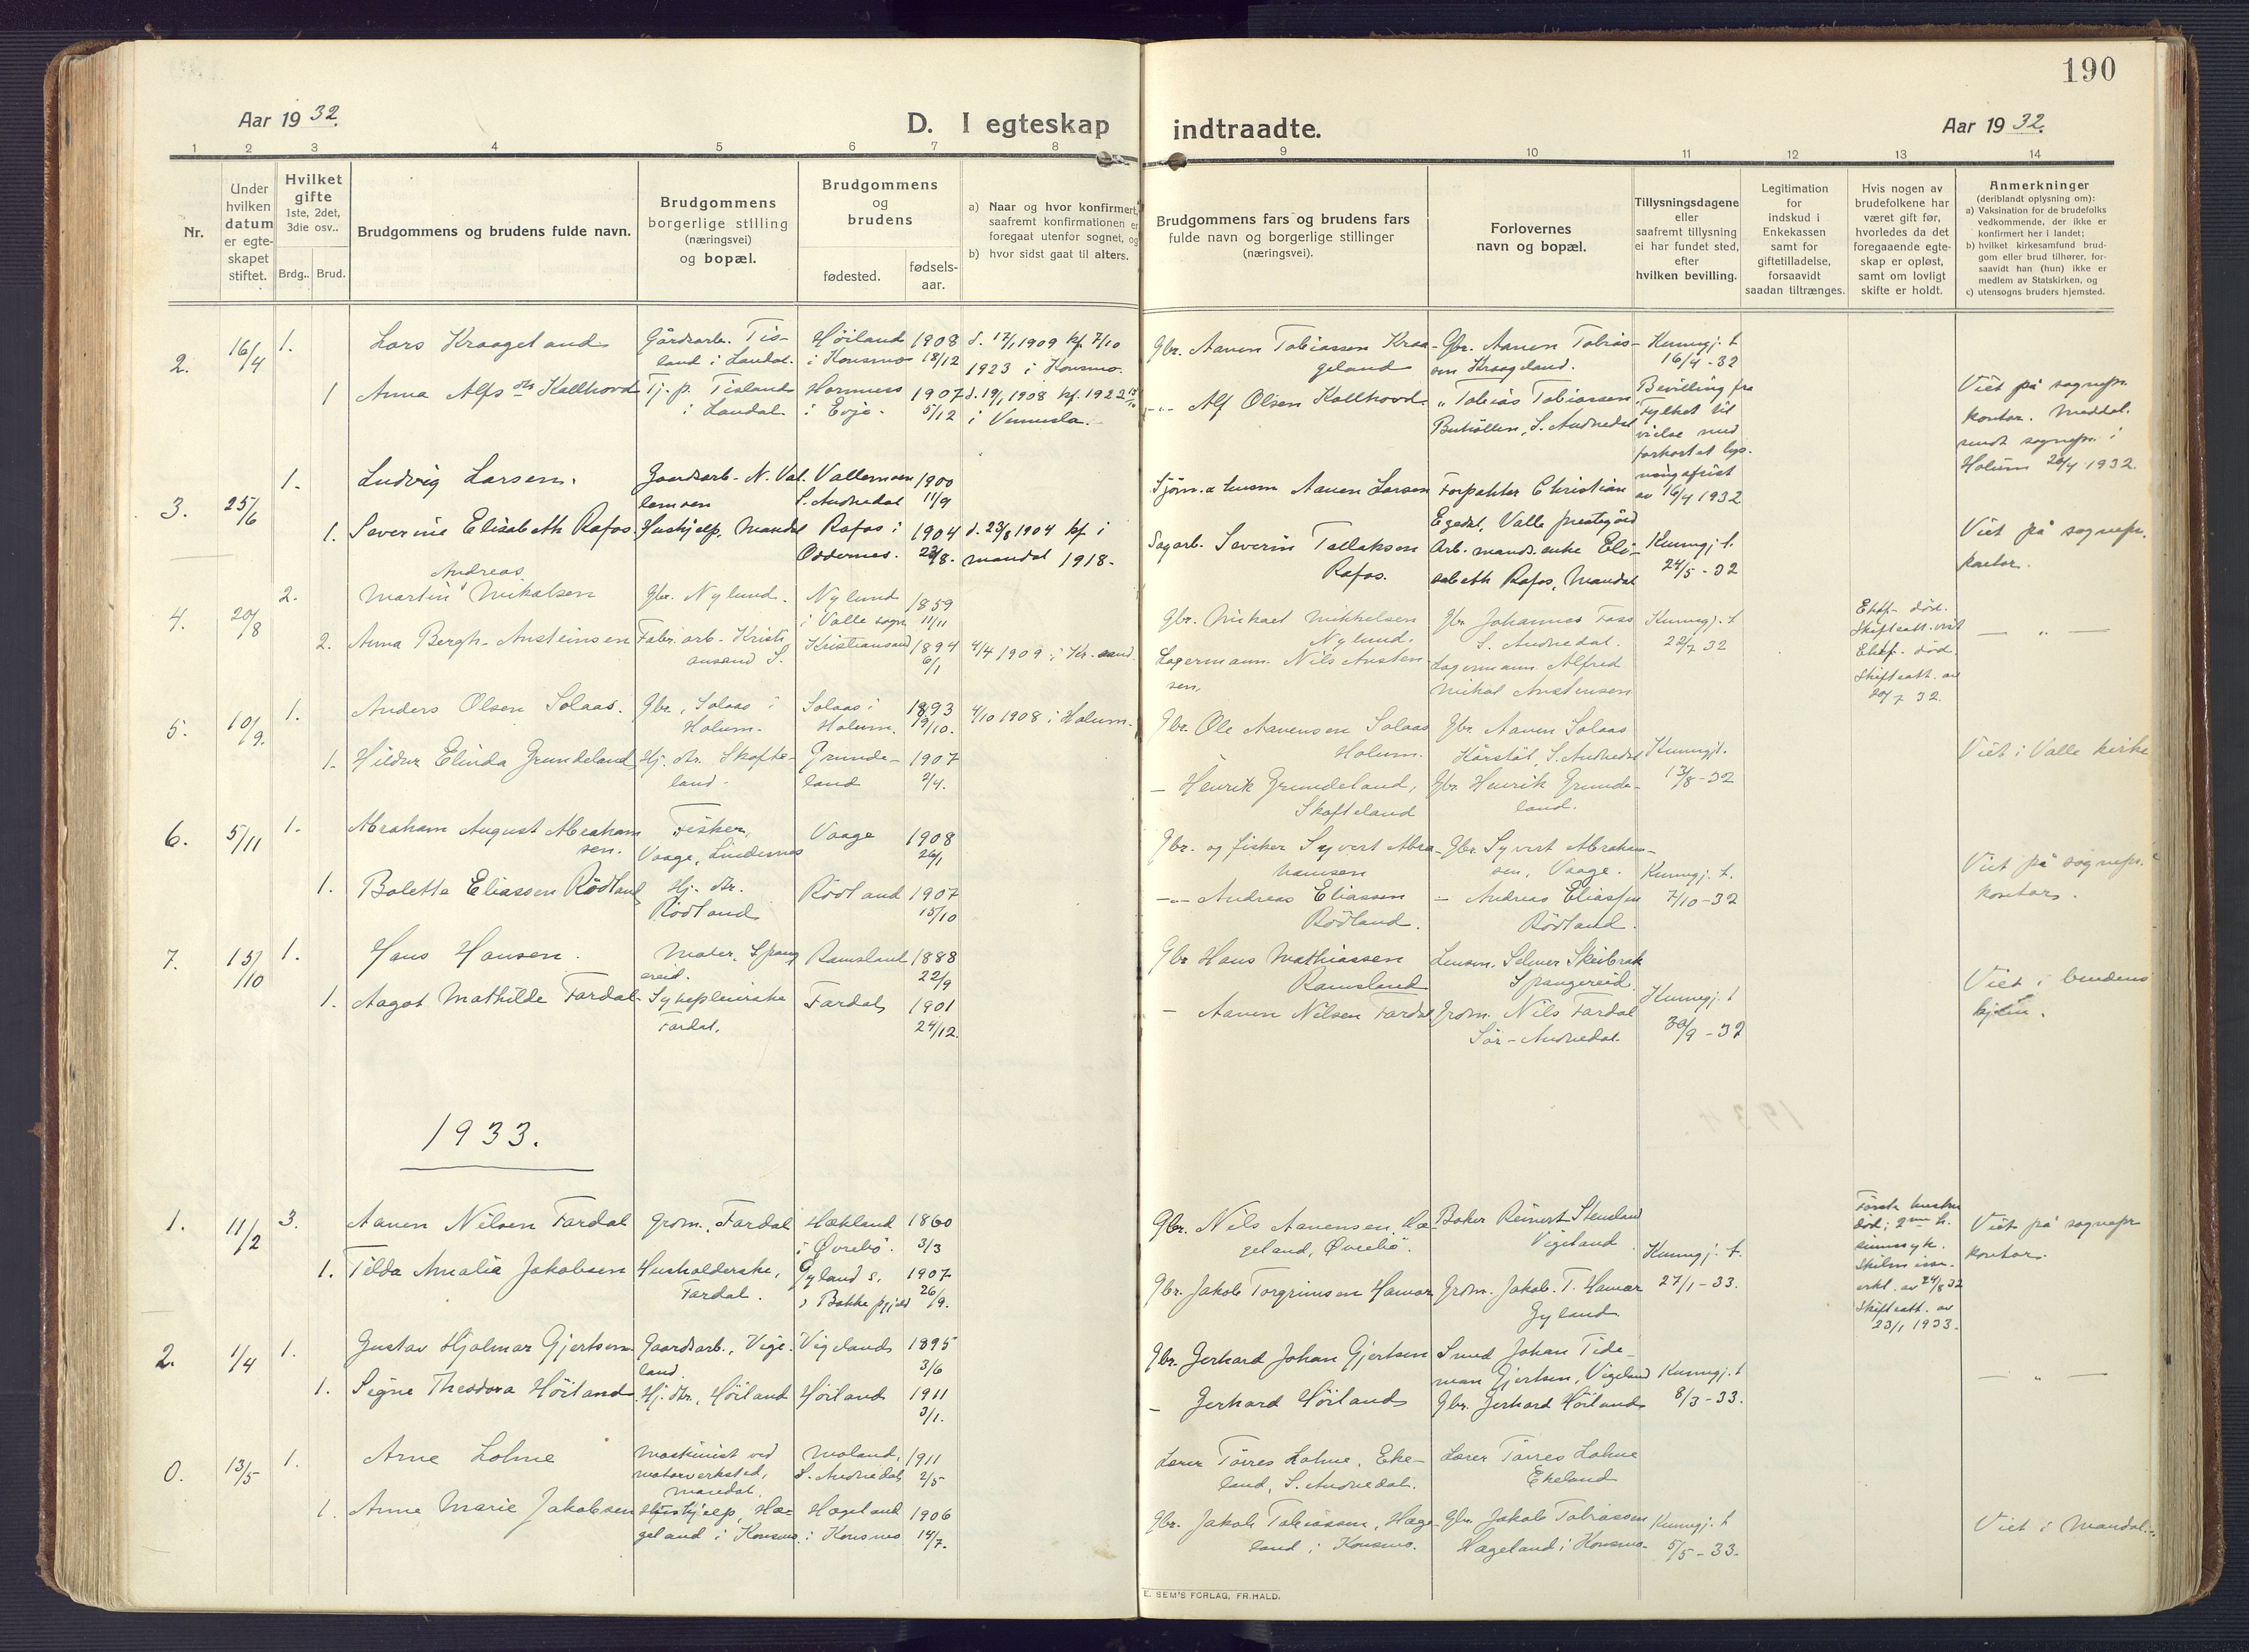 190
Aar 19 32.
D. I egteskap indtraadte.
Aar 19 32.
1 2 3 4 5 6 7 8 9 10 11 12 13 14
Nr.
Under hvilken datum er egteskapet stiftet.
Hvilket gifte 1ste, 2det, 3die osv..
Brdg.. Brud.
Brudgommens og brudens fulde navn.
Brudgommens borgerlige stilling (næringsvei) og bopæl.
Brudgommens og brudens
fødested.
fødsels-aar.
a) Naar og hvor konfirmert, saafremt konfirmationen er foregaat utenfor sognet, og
b) hvor sidst gaat til alters.
Brudgommens fars og brudens fars fulde navn og borgerlige stillinger (næringsvei).
Forlovernes navn og bopæl.
Tillysningsdagene eller saafremt tillysning ei har fundet sted, efter hvilken bevilling.
Legitimation for indskud i Enkekassen samt for giftetilladelse, forsaavidt saadan tiltrænges.
Hvis nogen av brudefolkene har været gift før, hvorledes da det foregaaende egteskap er opløst, samt om lovligt skifte er holdt.
Anmerkninger (deriblandt oplysning om):
a) Vaksination for de brudefolks vedkommende, der ikke er konfirmert her i landet;
b) hvilket kirkesamfund brudgom eller brud tilhører, forsaavidt han (hun) ikke er medlem av Statskirken, og
c) utensogns bruders hjemsted.
2. 16/4 1. Lars Kraageland Gårdsarb. Tisland i Laudal. Høiland i Konsmo 1908 18/12 d. 17/1 1909 kf. 7/10 1923 i Konsmo.
Gbr. Aanen Tobiassen Kraageland Gbr. Aanen Tobiassen Kraageland. Kunngj. t. 16/4-32
1 Anna Alfs dtr Kallhovd Tj. p. Tisland i Laudal. Hornnes i Evje. 1907 5/12 d. 19/1 1908 kf. 1922 i Vennesla.
-"- Alf Olsen Kallhovd. " Tobias Tobiassen, S. Audnedal
Bevilling fra Fylket til vielse med forkortet lysningsfrist av 16/4 1932
Viet på sognepr. kontor. Meddel. sendt sognepr. i Holum 20/4 1932.
3. 25/6 1. Ludvig Larsen. Gaardsarb. N. Vallemoen Vallemoen S. Audnedal 1900 11/9
Sjøm. & husm Aanen Larsen Forpakter Christian Egedal, Valle prestegård
1. Severine Elisabeth Rafos. Hushjelp, Mandal Rafos i Oddernes. 1904 23/8. d. 23/8 1904 kf i Mandal 1918.
Sagarb. Severin Tallaksen Rafos. Arb. mands enke Elisabeth Rafos, Mandal Kunngj. t. 24/5-32
Viet på sognepr. kontor.
4. 20/8 2. Martin Andreas Mikalsen Gbr. Nylund. Nylund i Valle sogn 1859 11/11
Gbr. Mikael Mikkelsen Nylund. Gbr. Johannes Foss S. Audnedal. Kunngj. t. 22/7 32
Ektf. død. Skifteatt. vist
2. Anna Bergh-Austeinsen Fabr. arb. Kristiansand S. Kristiansand 1894 6/1 4/4 1909 i Kr.sand.
Lagermann. Nils Austensen, Lagermann Alfred Mikal Austensen
Ektf. død. Skifteatt. av 20/7 32.
— " —
5. 10/9. 1. Anders Olsen Solaas. Gbr., Solaas i Holum. Solaas i Holum. 1893 19/10. 4/10 1908 i Holum.
Gbr. Ole Aanensen Solaas Holum. Gbr. Aanen Solaas Kårstøl, S. Audnedal Kunngj t. 13/8-32
1. Hildur Elinda Grundeland Hj. dtr. Skofteland. Grundeland 1907 2/4.
— Henrik Grundeland, Skofteland Gbr. Henrik Grundeland.
Viet i Valle kirke
6. 5/11 1. Abraham August Abrahamsen. Fisker, Vaage, Lindesnes Vaage 1908 26/1
Gbr. og fisker Syvert Abrahamsen Gbr Syvert Abrahamsen, Vaage. Kunngj. t. 7/10-32
1. Bolette Eliassen Rödland Hj. dtr. Rödland Rödland 1907 15/10
-"- Andreas Eliassen Rödland. — Andreas Eliassen Rödland.
Viet på sognepr. kontor.
7. 15/10 1. Hans Hansen. Maler, Spangereid. Ramsland 1888 22/9
Gbr Hans Mathiassen Ramsland Lensm. Selmer Skeibrok Spangereid.
1. Aagot Mathilde Fardal Sykepleierske Fardal. Fardal 1901 24/12.
— Aanen Nilsen Fardal Grdm. Nils Fardal Sör-Audnedal. Kunngj. t 30/9-32
Viet i brudens hjem.
1933.
1. 11/2 3. Aanen Nilsen Fardal Grdm. Fardal Hækland i Øvrebö. 1860 3/3
Gbr. Nils Aanensen Hægeland, Øvrebö. Baker Reinert Stenland Vigeland. Kunngj. t. 27/1-33.
1. Tilda Amalia Jakobsen Husholderske, Fardal. Gyland s. i Bakke pgjeld 1907 26/9.
Gbr. Jakob Torgrimsen Hamar Grdm. Jakob. T. Hamar Gyland
Første hustru död; 2nen h. sinnssyk. Skilmisse erkl. av 24/8 32 Skifteatt. av 23/1 1933.
Viet på sognepr kontor.
2. 1/4 1. Gustav Hjalmar Gjertsen Gaardsarb., Vigeland. Vigeland 1895 3/6
Gbr. Gerhard Johan Gjertsen Smed Johan Tideman Gjertsen, Vigeland Kunngj. t 8/3-33.
1. Signe Theodora Höiland Hj. dtr., Höiland Höiland 1911 3/1.
— Gerhard Höiland Gbr. Gerhard Höiland
— " —
0. 13/5 1. Arne Lohne Maskinist ved motorverksted, Mandal. Moland, S. Audnedal 1911 2/5
Lærer Törres Lohne, Ekeland, S. Audnedal. Lærer Törres Lohne Ekeland
1. Anne Marie Jakobsen Hushjelp, Hægeland i Konsmo. Hægeland i Konsmo 1906 14/7.
Gbr. Jakob Tobiassen, Hægeland i Konsmo. Gbr. Jakob Tobiassen Hægeland i Konsmo. Kunngj. t 5/5-33.
Viet i Mandal.
E. SEM'S FORLAG, FR.HALD.